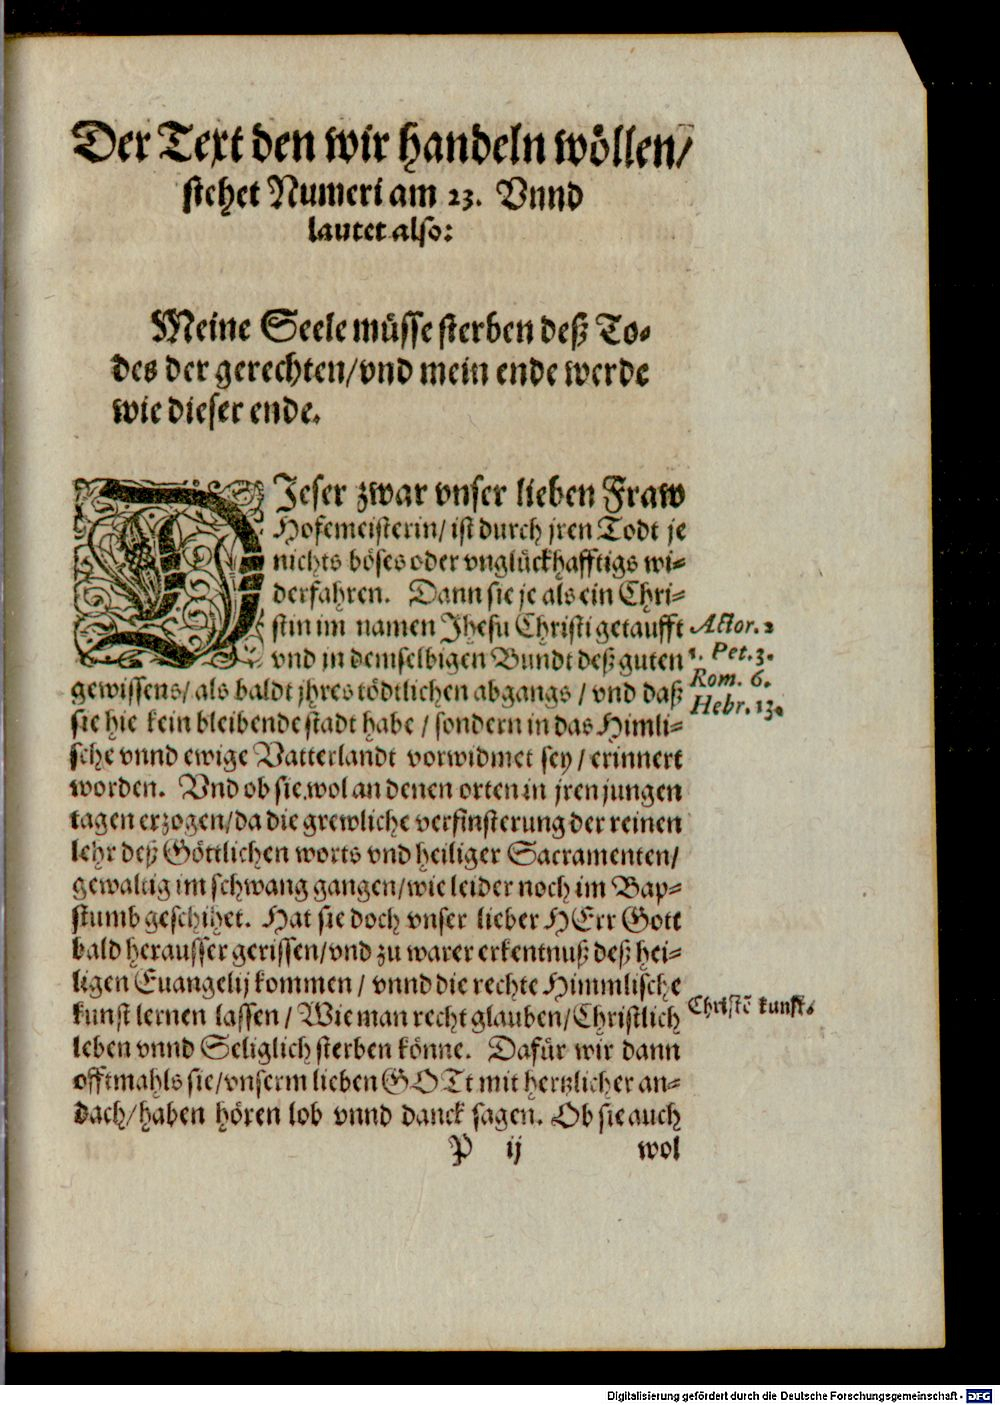 Der Text den wir handeln wöllen/
stehet Numeri am 23. Vnnd
lautet also:
Meine Seele müsse sterben deß To-
des der gerechten/vnd mein ende werde
wie dieser ende.
DJeser zwar vnser lieben Fraw
Hofemeisterin/ ist durch jren Todt je
nichts böses oder vnglückhafftigs wi-
derfahren. Dann sie je als ein Chri-
stin im namen Jhesu Christi getaufft Actor. 2
vnd in demselbigen Bundt deß guten 1. Pet. 3.
gewissens/ als baldt jhres tödtlichen abgangs / vnd daß Rom. 6.
sie hie kein bleibende stadt habe / sondern in das Himli- Hebr. 13.
sche vnnd ewige Vatterlandt vorwidmet sey / erinnert
worden. Vnd ob sie wol an denen orten in jren jungen
tagen erzogen/da die grewliche verfinsterung der reinen
lehr deß Göttlichen worts vnd heiliger Sacramenten/
gewaltig im schwang gangen/wie leider noch im Bap-
stumb geschihet. Hat sie doch vnser lieber HErr Gott
bald herausser gerissen/vnd zu warer erkentnuß deß hei-
ligen Euangelij kommen / vnnd die rechte Himmlische
kunst lernen lassen / Wie man recht glauben/Christlich Christē kunst.
leben vnnd Seliglich sterben könne. Dafür wir dann
offtmahls sie/vnserm lieben GOTt mit hertzlicher an-
dach/haben hören lob vnnd danck sagen. Ob sie auch
P ij wol
Digitalisierung gefördert durch die Deutsche Forschungsgemeinschaft - DFG